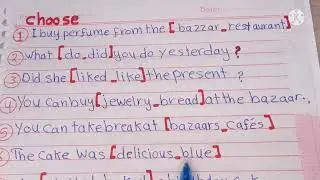 choose
① I buy perfume from the [bazzar_restaurant]
② what [do_did] you do yesterday?
③ Did she [liked_like] the present?
④ You can buy [jewelry_bread] at the bazaar.
You can take break at [bazaars_cafés]
The cake was [delicious_blue].